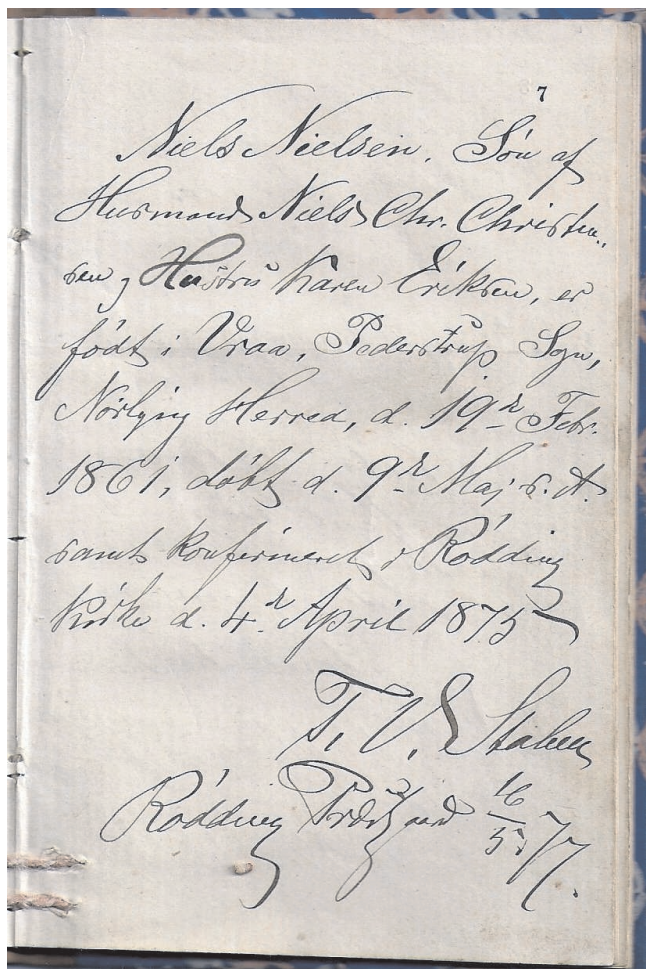 7
Niels Nielsen. Søn af
Husmand Niels Chr. Christen-
sen og Hustru Karen Eriksen, er
født i Vraa, Pederstrup Sogn,
Nørlyng Herred, d. 19de Febr.
1861, døbt d. 9de Maj s. A.
samt konfirmeret i Rødding
Kirke d. 4de April 1875
T. V.
Rødding Præstegaard 16/5 77.